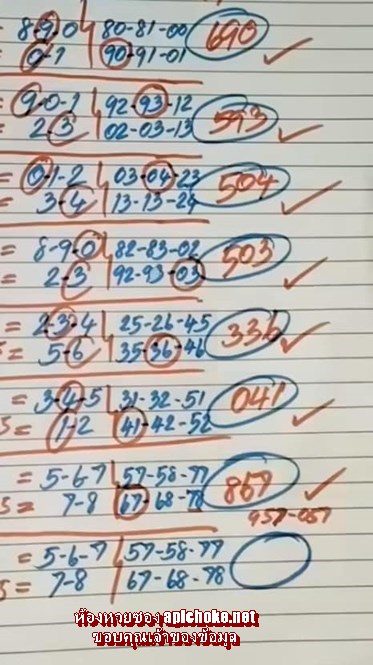 8-9-0 80-81-00 690
0-1 90-91-01
= 9-0-1 92-93-12 593
= 2-3 02-03-13
= 0-1-2 03-04-23 504
= 3-4 13-13-24
= 8-9-0 82-83-02 503
= 2-3 92-93-03
= 2-3-4 25-26-45 336
S= 5-6 35-36-46
= 3-4-5 31-32-51 041
S= 1-2 41-42-52
= 5-6-7 57-58-77 867
S= 7-8 67-68-78
957-057
= 5-6-7 57-58-77
S= 7-8 67-68-78
ห้องหวยซอง aplchoke.net
ขอบคุณเจ้าของข้อมูล